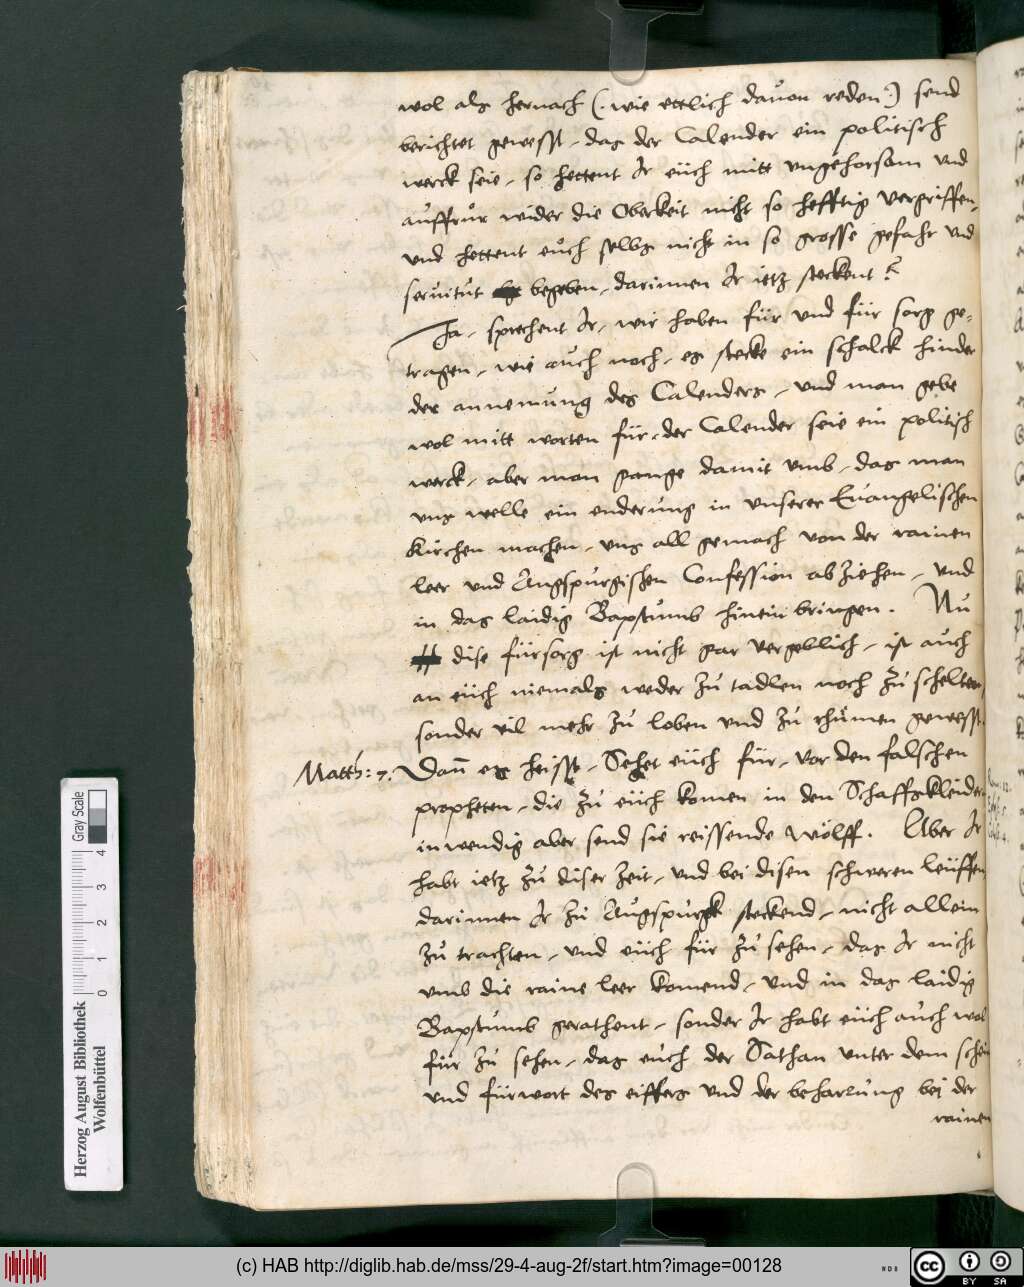 wol als hernach (: wie ettlich dauon reden :) send
berichtet gewesst, das der Calender ein politisch
werck seie, so hettent Ir eüch mitt vngehorsam vnd
auffrur wider die Oberkeit nicht so hefftig vergriffen,
vnd hettent euch selbs nicht in so grosse gefahr vnd
seruitut begeben, darinnen Ir ietz steckent?
Ja, sprechent Ir, wir haben für vnd für sorg ge-
tragen, wie auch noch, es stecke ein schalck hinder
der annemung des Calenders, vnd man gebe
wol mitt worten für, der Calender seie ein politisch
werck, aber man gange damit vmb, das man
vns welle ein enderung in vnserer Euangelischen
Kirchen machen, vns all gemach von der rainen
leer vnd Augspurgischen Confession abziehen, vnd
in das laidig Bapstumb hinein bringen. Nu
dise fürsorg ist nicht gar vergeblich, ist auch
an eüch niemals weder zu tadlen noch zu schelten,
sonder vil mehr zu loben vnd zu rhümen gewesst.
Matth: 7. Dann es heisst, Sehet eüch für, vor den falschen
propheten, die zu eüch komen in den Schaffskleider
inwendig aber send sie reissende wölff. Aber Ir
habt ietz zu diser zeit, vnd bei disen schweren leüffen
darinnen Ir zu Augspurgk steckend, nicht allein
zu trachten, vnd eüch für zu sehen, das Ir nicht
vmb die raine leer komend, vnd in das laidig
Bapstumb gerathent, sonder Ir habt eüch auch wol
für zu sehen, das euch der Sathan vnter dem schein
vnd fürwort des eiffers vnd der beharrung bej der
rainen
Herzog August Bibliothek
Wolfenbüttel
0 1 2 3 4
Gray Scale
(c) HAB http://diglib.hab.de/mss/29-4-aug-2f/start.htm?image=00128
WDB
cc BY SA